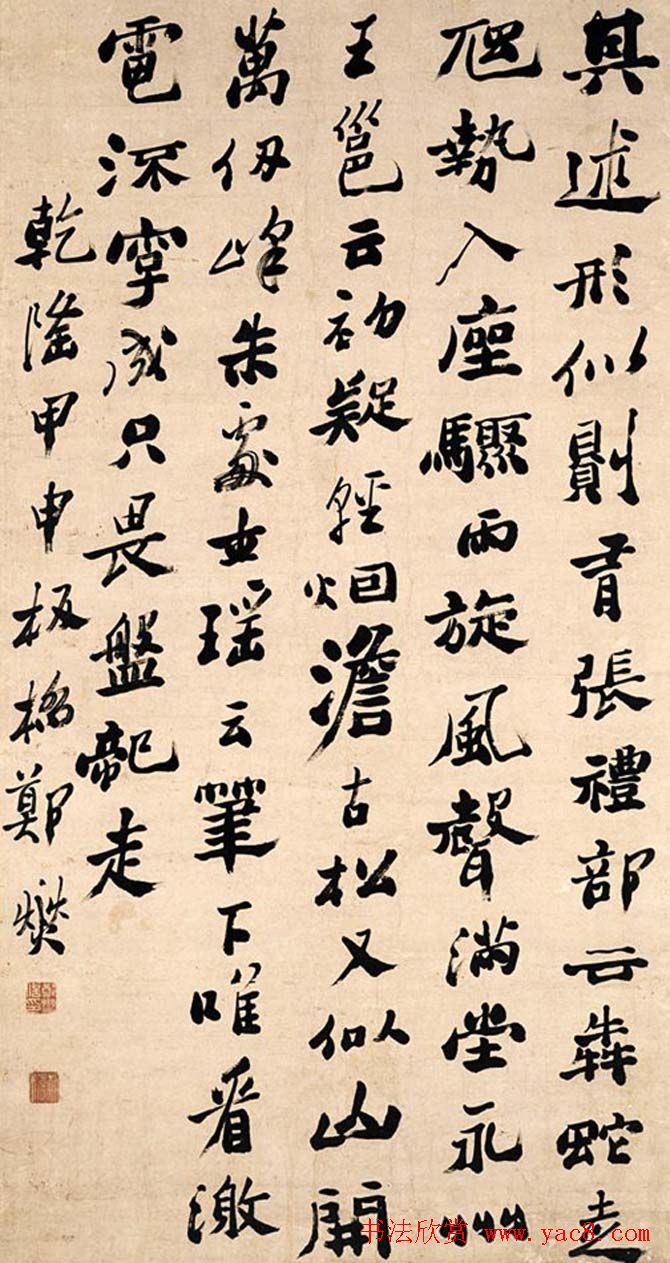 其述形似則有張禮部云犇蛇走
虺勢入座驟雨旋風聲滿堂永州
王邕云初疑輕烟澹古松又似山開
萬仞峰朱處士瑶云筆下唯看激
電流字成只畏盤龍走
乾隆甲申板橋鄭燮
书法欣赏 www.yac8.com